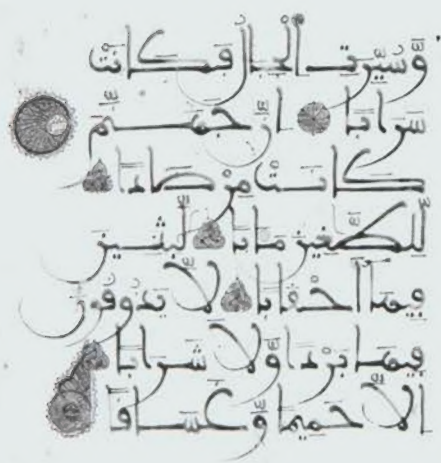 وَّسُيِّرَتِ الْجِبَالُ فَكَانَتْ
سَرَابًا إِنَّ جَهَنَّمَ
كَانَتْ مِرْصَادًا
لِّلطَّٰغِينَ مَـَٔابًا لَّٰبِثِينَ
فِيهَا أَحْقَابًا لَّا يَذُوقُونَ
فِيهَا بَرْدًا وَّلَا شَرَابًا
إِلَّا حَمِيمًا وَّغَسَّاقًا